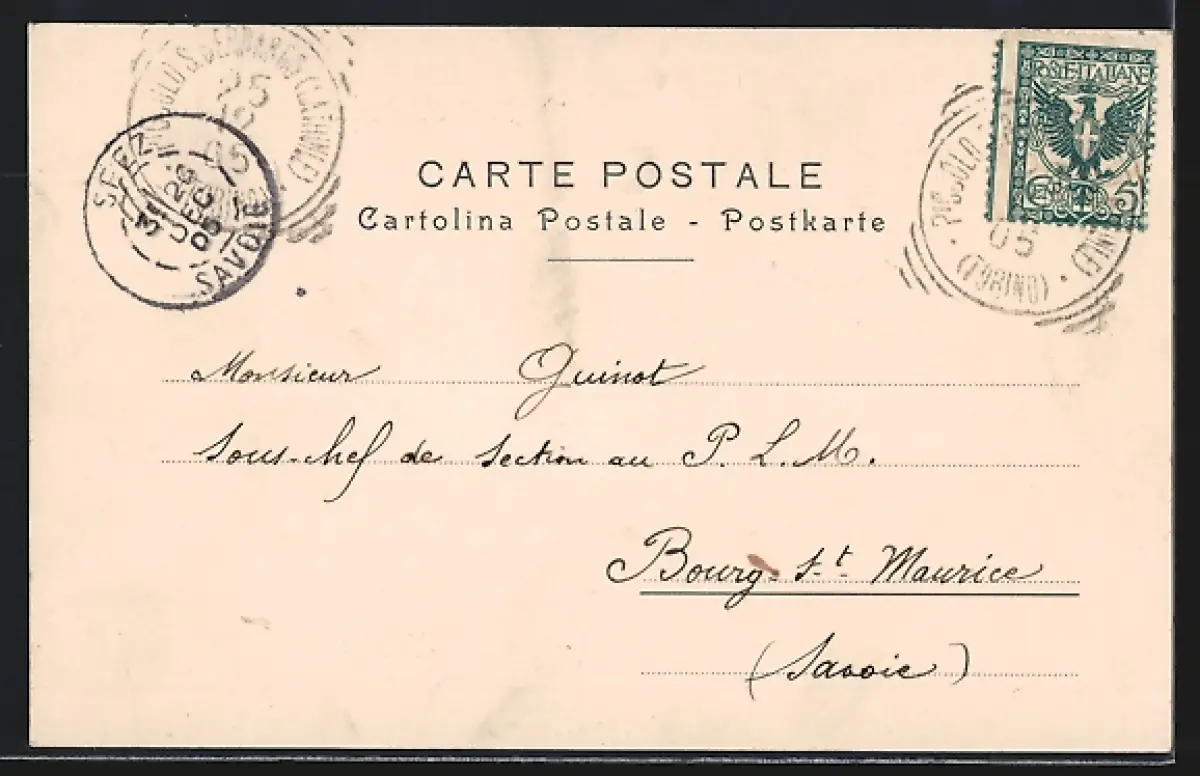 PICCOLO S. BERNARDO (LA THUILE)
25
12
02
SEEZ
3
26
DEC
05
SAVOIE
POSTE ITALIANE
CENT
5
PICCOLO
05
(TORINO)
CARTE POSTALE
Cartolina Postale - Postkarte
Monsieur Guinot
Sous-chef de section au P. L. M.
Bourg-St-Maurice
(Savoie)